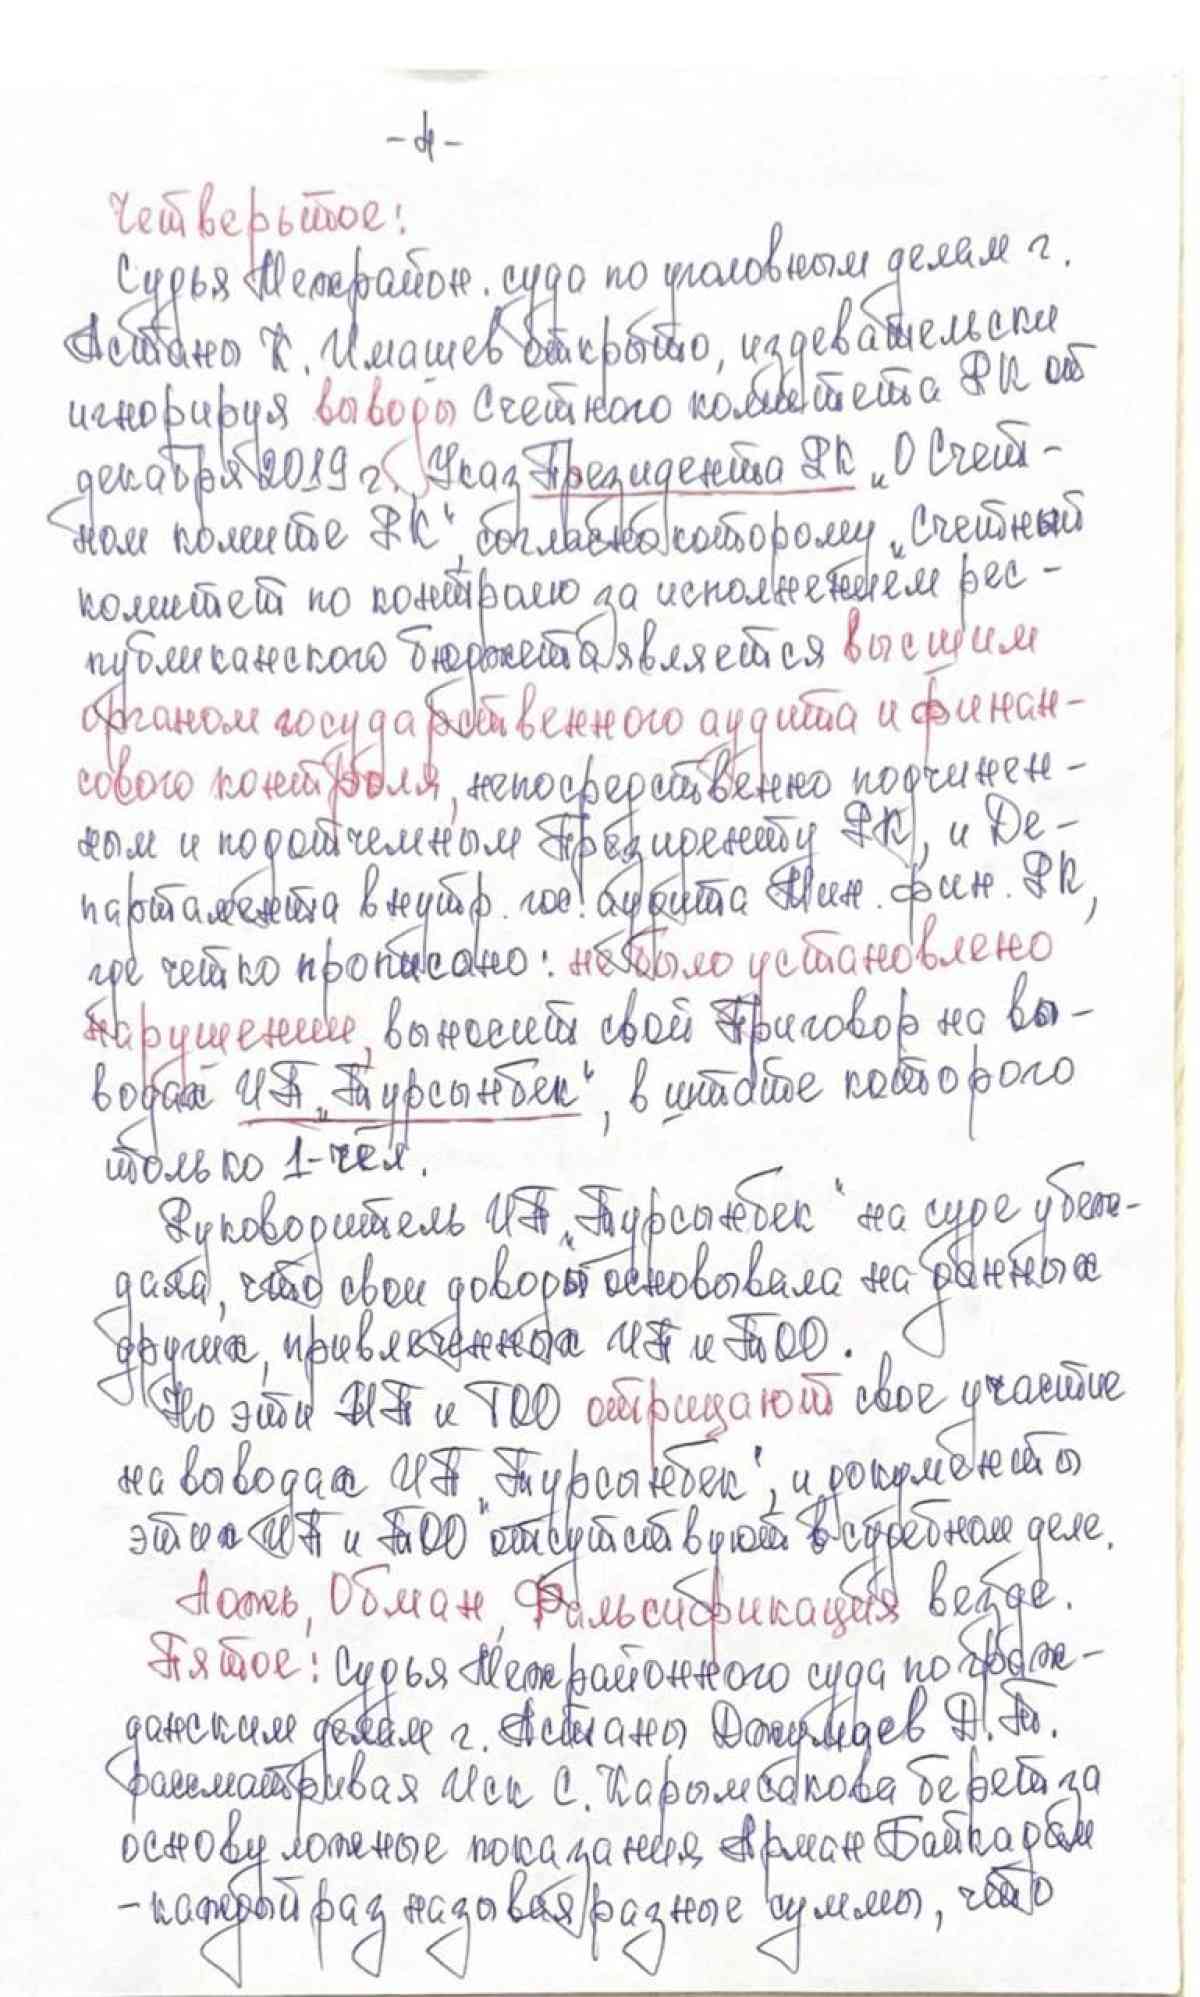 -4-
Четверьтое:
Судья Межрайон. суда по уголовным делам г.
Астаны К. Имашев открыто, издевательски
игнорируя выводы Счетного комитета РК от
декабря 2019 г., Указ Президента РК „О Счет-
ном комитте РК", согласно которому „Счетный
комитет по контролю за исполнением рес-
публиканского бюджета является высшим
органом государственного аудита и финан-
сового контроля, непосредственно подчинен-
ным и подотчемным Президенту РК, и Де-
партамента внутр. гос. аудита Мин. фин. РК,
где четко прописано: не было установлено
нарушений, выносит свой Приговор на вы-
водах ИП „Турсынбек", в штате которого
только 1-чел.
Руководитель ИП „Турсынбек" на суде убеж-
дала, что свои доводы основывала на данных
других, привлеченных ИП и ТОО.
Но эти ИП и ТОО отрицают свое участие
на выводах ИП „Турсынбек", и документы
этих ИП и ТОО отсутствуют в судебном деле.
Ложь, Обман, Фальсификация везде.
Пятое: Судья Межрайонного суда по граж-
данским делам г. Астаны Джумаев Д.Т.
рассматривая Иск С. Карымсакова берет за
основу ложные показания Арман Байкадам
-каждый раз называя разные суммы, что